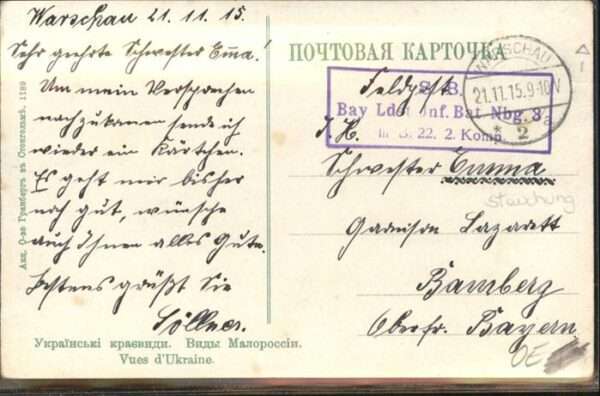 Warschau 21.11.15.
Sehr geehrte Schwester Emma!
Um mein Versprechen
nachzukommen sende ich
wieder ein Kärtchen.
Es geht mir bisher
noch gut, wünsche
auch Ihnen alles Gute.
Bestens grüßt Sie
Söllner.
Українські краєвиди. Виды Малороссіи.
Vues d'Ukraine.
Акц. О-во Гранбергъ въ Стокгольмѣ. 1189
ПОЧТОВАЯ КАРТОЧКА
Feldpost
S. B.
Bay Ldst Inf. Bat. Nbg. 3
III B. 22. 2. Komp.
WARSCHAU
21.11.15.9-10V
* 2 a
Schwester Emma
stauchung
Garnison Lazarett
Bamberg
Oberfr. Bayern.
OE